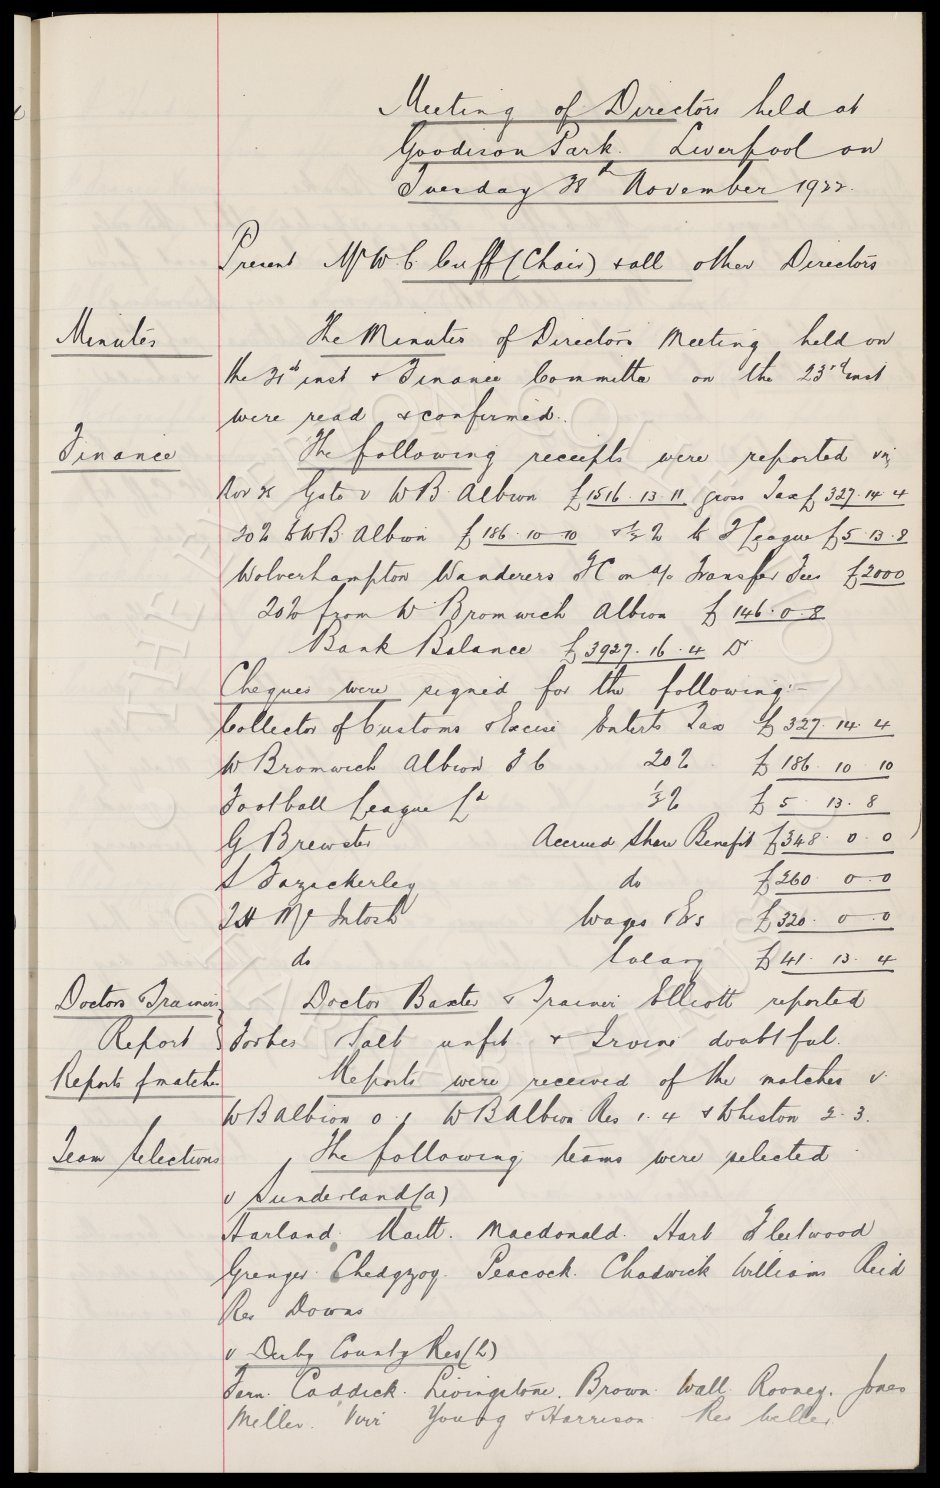 Meeting of Directors held at
Goodison Park. Liverpool on
Tuesday 28th November 1922.
Present Mr W. C. Cuff (Chair) & all other Directors
Minutes The Minutes of Directors Meeting held on
the 21st inst & Finance Committee on the 23rd inst
were read & confirmed.
Finance The following receipts were reported viz
Nov 25 Gate v W B Albion £1516. 13. 11 gross Tax £327. 14. 4
20% to W B Albion £186. 10. 10 & ½% to F League £5. 13. 8
Wolverhampton Wanderers FC on a/c Transfer Fees £2000
20% from W Bromwich Albion £146. 0. 8
Bank Balance £3927. 16. 4 Dr
Cheques were signed for the following:-
Collector of Customs & Excise Enterts Tax £327. 14. 4
W Bromwich Albion F C 20% £186. 10. 10
Football League Ld ½% £5. 13. 8
G Brewster Accrued Share Benefit £348. 0. 0
S Fazackerley do £260. 0. 0
T H McIntosh Wages & Exs £320. 0. 0
do Salary £41. 13. 4
Doctors & Trainers Doctor Baxter & Trainer Elliott reported
Report Forbes Salt unfit & Irvine doubtful.
Reports of matches Reports were received of the matches v.
W B Albion 0. 1 W B Albion Res 1. 4 & Whiston 2. 3.
Team Selections The following teams were selected
v Sunderland (a)
Harland. Raitt. Macdonald. Hart Fleetwood
Grenyer. Chedgzoy. Peacock. Chadwick Williams Reid
Res Downs
v Derby County Res (h)
Fern. Caddick. Livingstone. Brown. Wall. Rooney. Jones
Miller. Virr Young & Harrison. Res Weller
THE EVERTON COLLECTION